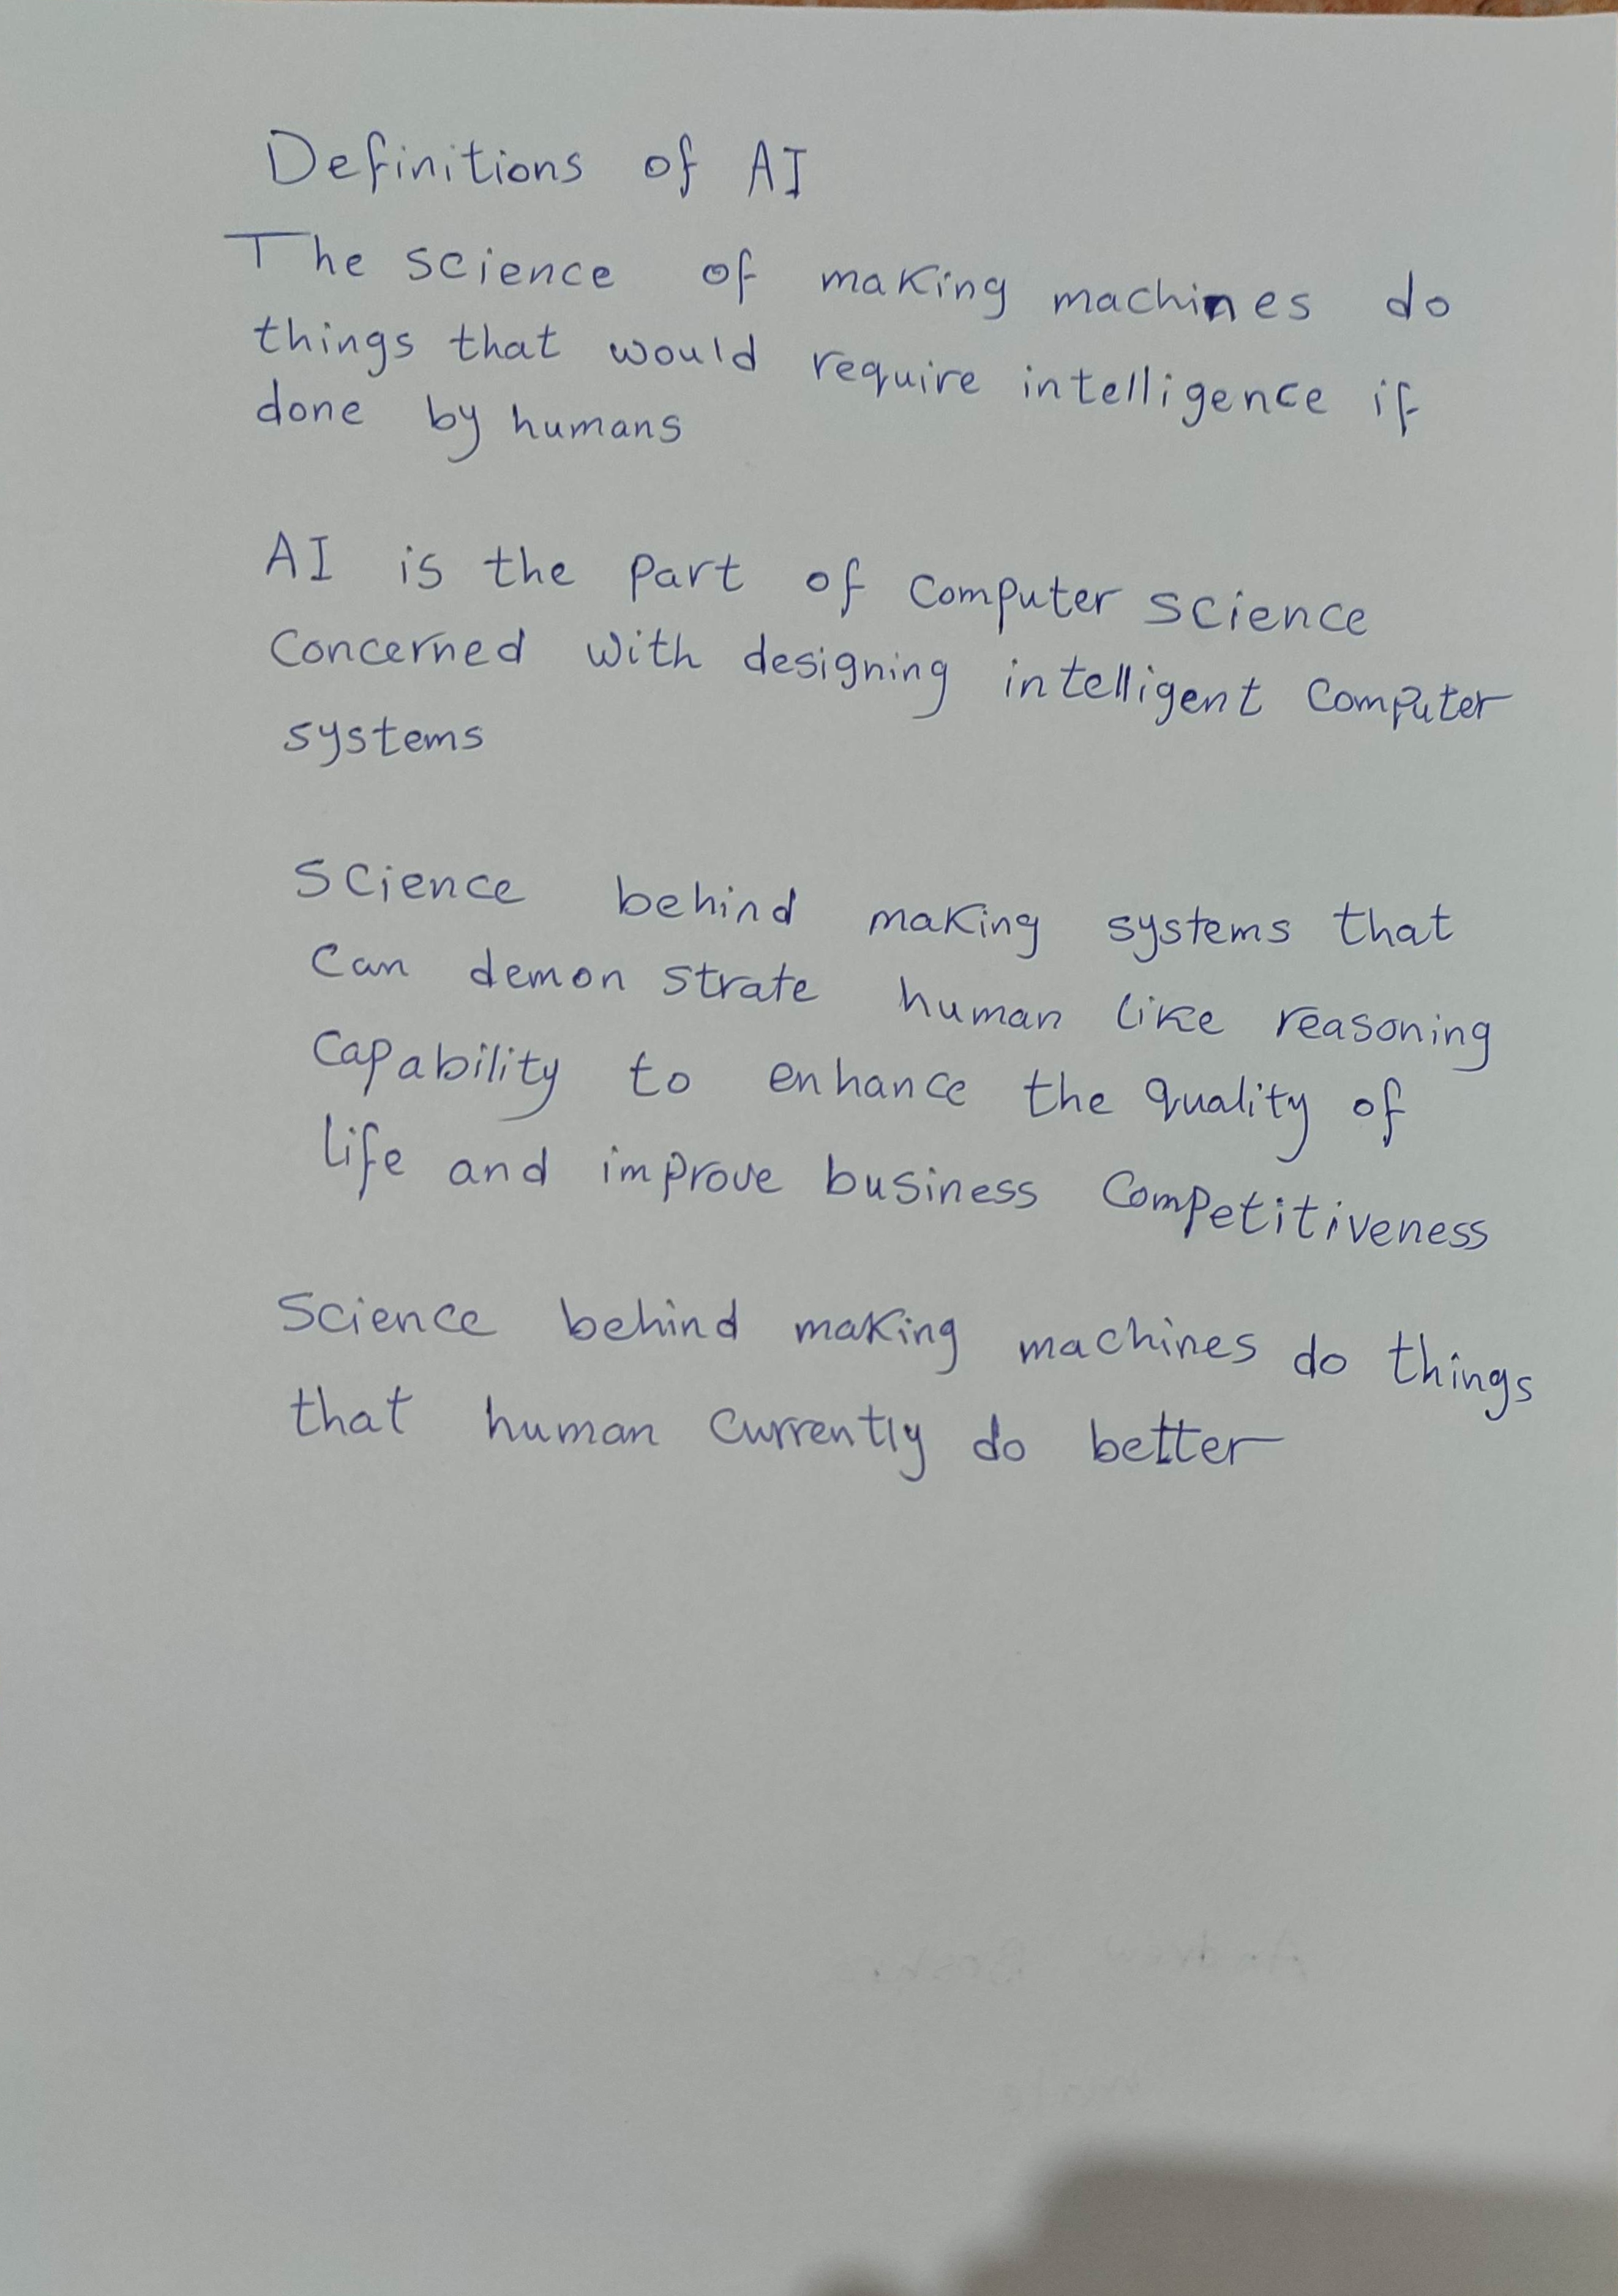 Definitions of AI
The science of making machines do
things that would require intelligence if
done by humans
AI is the part of computer science
concerned with designing intelligent computer
systems
Science behind making systems that
can demon strate human like reasoning
capability to enhance the quality of
life and improve business competitiveness
Science behind making machines do things
that human currently do better